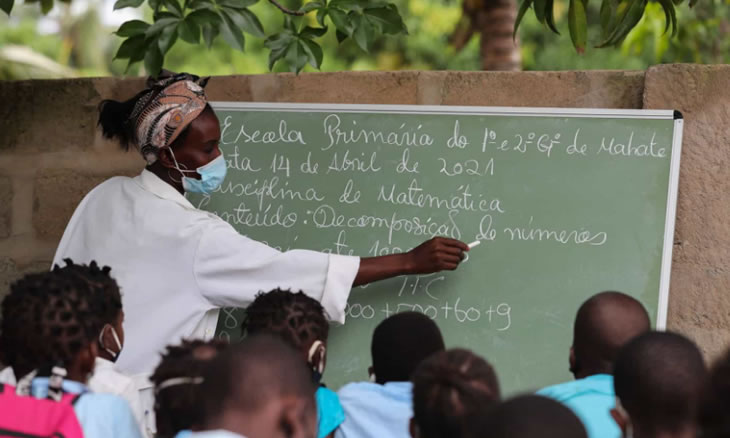 Escola Primária do 1º e 2º G. de Mahate
Data 14 de Abril de 2021
Disciplina de Matemática
Conteúdo: Decomposição de números
até
T.P.C
+60+9